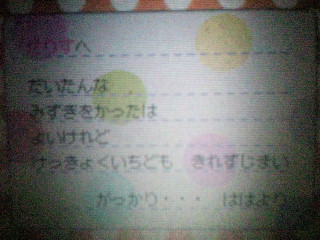 せりすへ
だいたんな
みずぎをかったは
よいけれど
けっきょくいちども きれずじまい
がっかり・・・ ははより